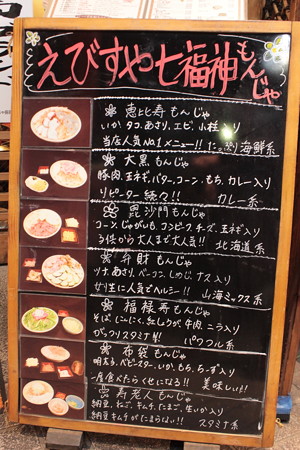 えびすや七福神もんじゃ
❀ 恵比寿もんじゃ
いか、タコ、あさり、エビ、小柱入り
当店人気No.1メニュー!! たっぷり海鮮系
❀ 大黒もんじゃ
豚肉、玉ネギ、バター、コーン、もち、カレー入り
リピーター続々!! カレー系
❀ 毘沙門もんじゃ
コーン、じゃがいも、コンビーフ、チーズ、玉ネギ入り
子供から大人まで大人気!! 北海道系
❀ 弁財もんじゃ
ツナ、あさり、ベーコン、しめじ、ナス入り
女り生に人気でヘルシー!! 山海ミックス系
❀ 福禄寿もんじゃ
そば、にんにく、紅しょうが、牛肉、ニラ入り
がっつりスタミナ!! パワフル系
❀ 布袋もんじゃ
明太子、ベビースター、いか、もち、ちーず入り
一度食べたらくせになる!! 美味しい!!
❀ 寿老人もんじゃ
納豆、ねぎ、キムチ、たまご、生いか入り
納豆キムチがたまらない!! スタミナ系